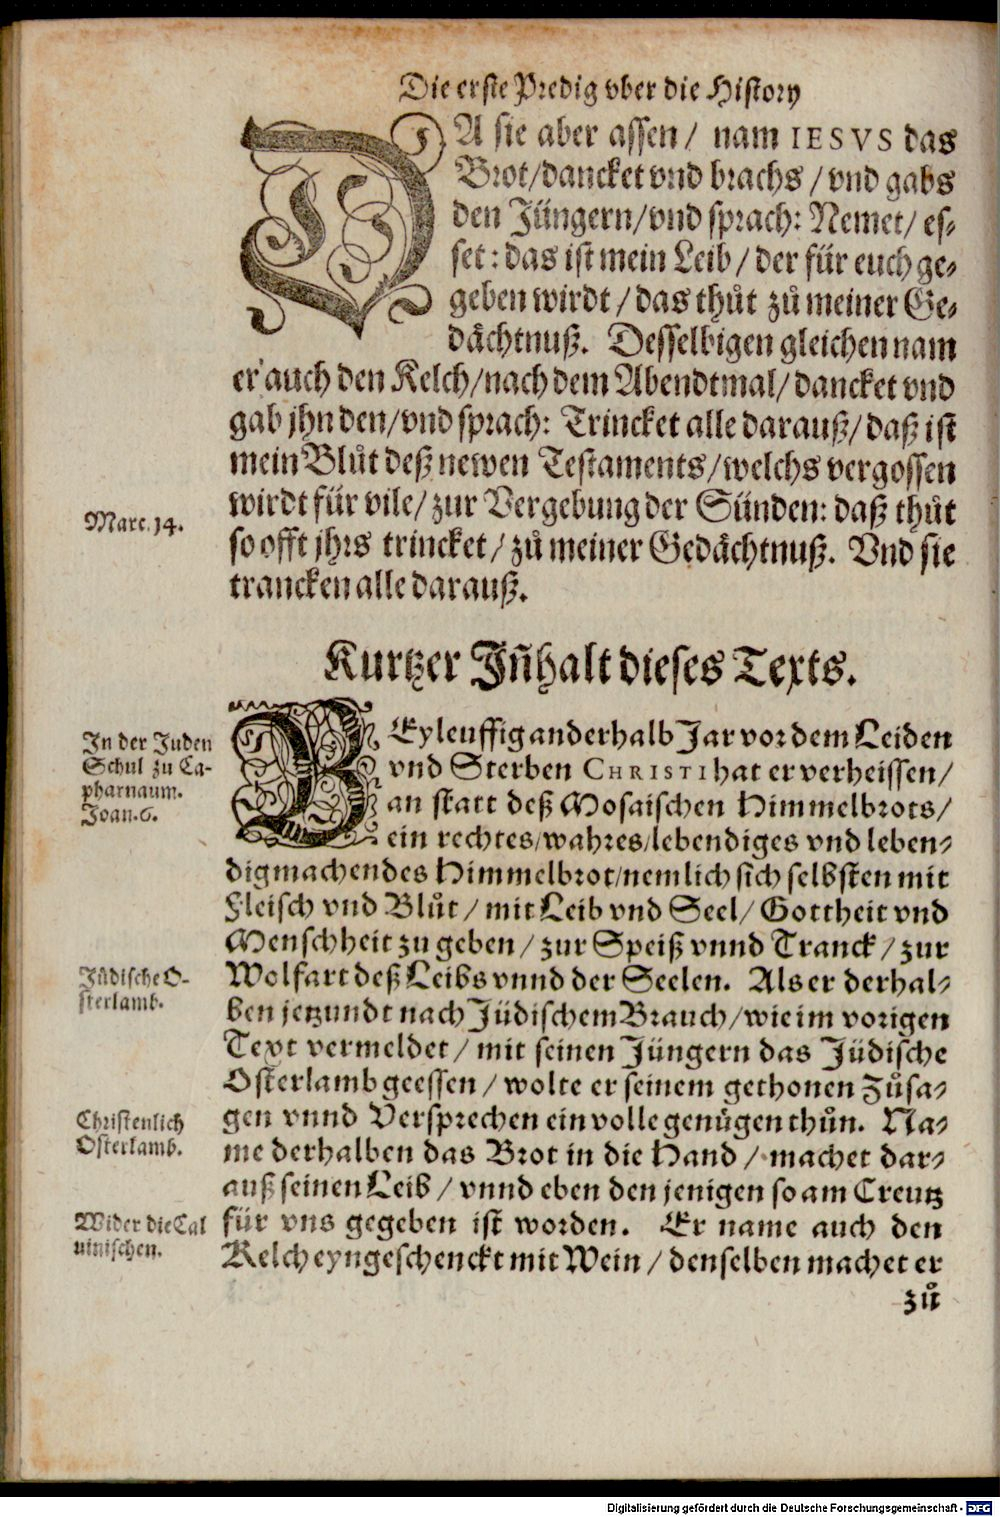 Die erste Predig vber die History
DA sie aber assen / nam IESVS das
Brot/dancket vnd brachs / vnd gabs
den Jüngern/vnd sprach: Nemet/ es-
set: das ist mein Leib / der für euch ge-
geben wirdt / das thůt zů meiner Ge-
dächtnuß. Desselbigen gleichen nam
er auch den Kelch/nach dem Abendtmal/ dancket vnd
gab jhn den/vnd sprach: Trincket alle darauß/ daß ist
mein Blůt deß newen Testaments/welchs vergossen
wirdt für vile/ zur Vergebung der Sünden: daß thůt
Marc. 14.
so offt jhrs trincket/ zů meiner Gedächtnuß. Vnd sie
trancken alle darauß.
Kurtzer Iñhalt dieses Texts.
BEyleuffig anderhalb Jar vor dem Leiden
vnd Sterben CHRISTI hat er verheissen/
an statt deß Mosaischen Himmelbrots/
ein rechtes/wahres/lebendiges vnd leben-
In der Juden
Schul zu Ca-
pharnaum.
Joan. 6.
digmachendes Himmelbrot/nemlich sich selbsten mit
Fleisch vnd Blůt / mit Leib vnd Seel/ Gottheit vnd
Menschheit zu geben / zur Speiß vnnd Tranck / zur
Wolfart deß Leibs vnnd der Seelen. Als er derhal-
Jüdische O-
sterlamb.
ben jetzundt nach Jüdischem Brauch/wie im vorigen
Text vermeldet / mit seinen Jüngern das Jüdische
Osterlamb geessen / wolte er seinem gethonen Zůsa-
gen vnnd Versprechen ein volle genůgen thůn. Na-
Christenlich
Osterlamb.
me derhalben das Brot in die Hand / machet dar-
auß seinen Leib / vnnd eben den jenigen so am Creutz
für vns gegeben ist worden. Er name auch den
Wider die Cal
uinischen.
Kelch eyngeschenckt mit Wein / denselben machet er
zů
Digitalisierung gefördert durch die Deutsche Forschungsgemeinschaft - DFG